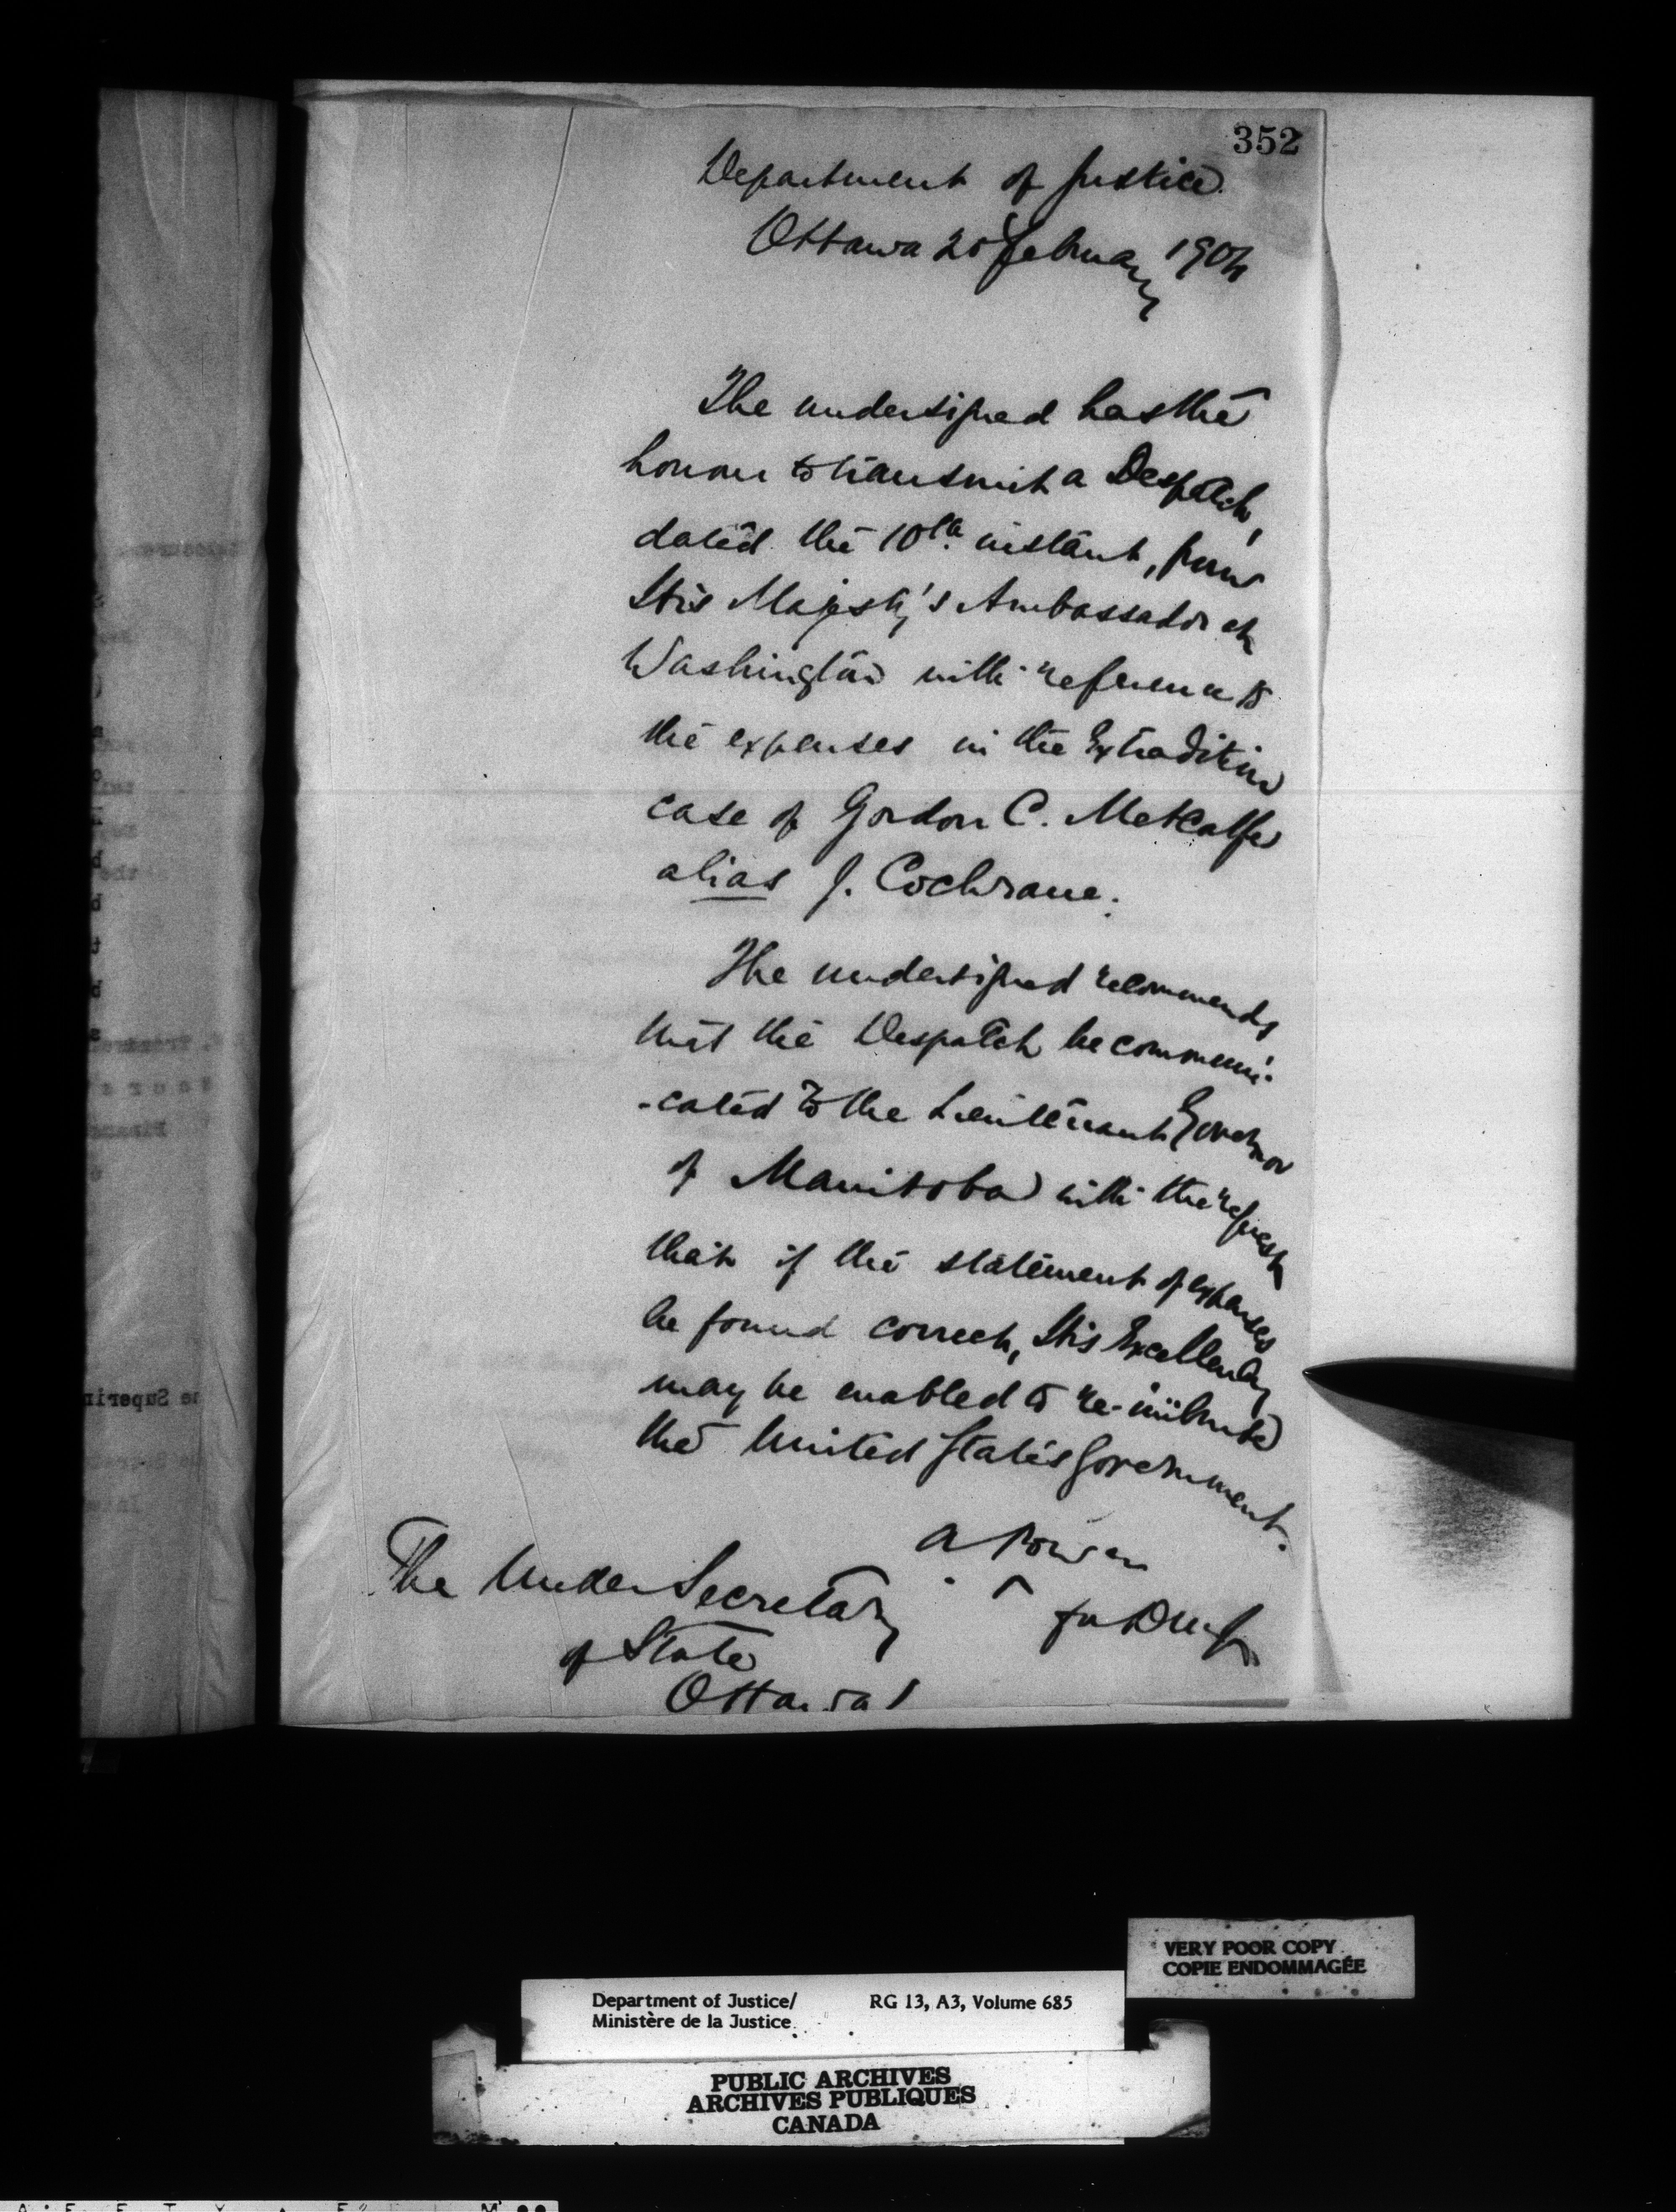 352
Department of Justice.
Ottawa 20 February 1904
The undersigned has the
honour to transmit a Despatch,
dated the 10th. instant, from
His Majesty's Ambassador at
Washington with reference to
the expenses in the Extradition
case of Gordon C. Metcalfe
alias J. Cochrane.
The undersigned recommends
that the Despatch be communi-
-cated to the Lieutenant Governor
of Manitoba with the request
that if the statement of expenses
be found correct, His Excellency
may be enabled to re-imburse
the United States Government.
A Power
for DMJ
The Under Secretary
of State
Ottawa
VERY POOR COPY
COPIE ENDOMMAGÉE
Department of Justice/ RG 13, A3, Volume 685
Ministère de la Justice
PUBLIC ARCHIVES
ARCHIVES PUBLIQUES
CANADA